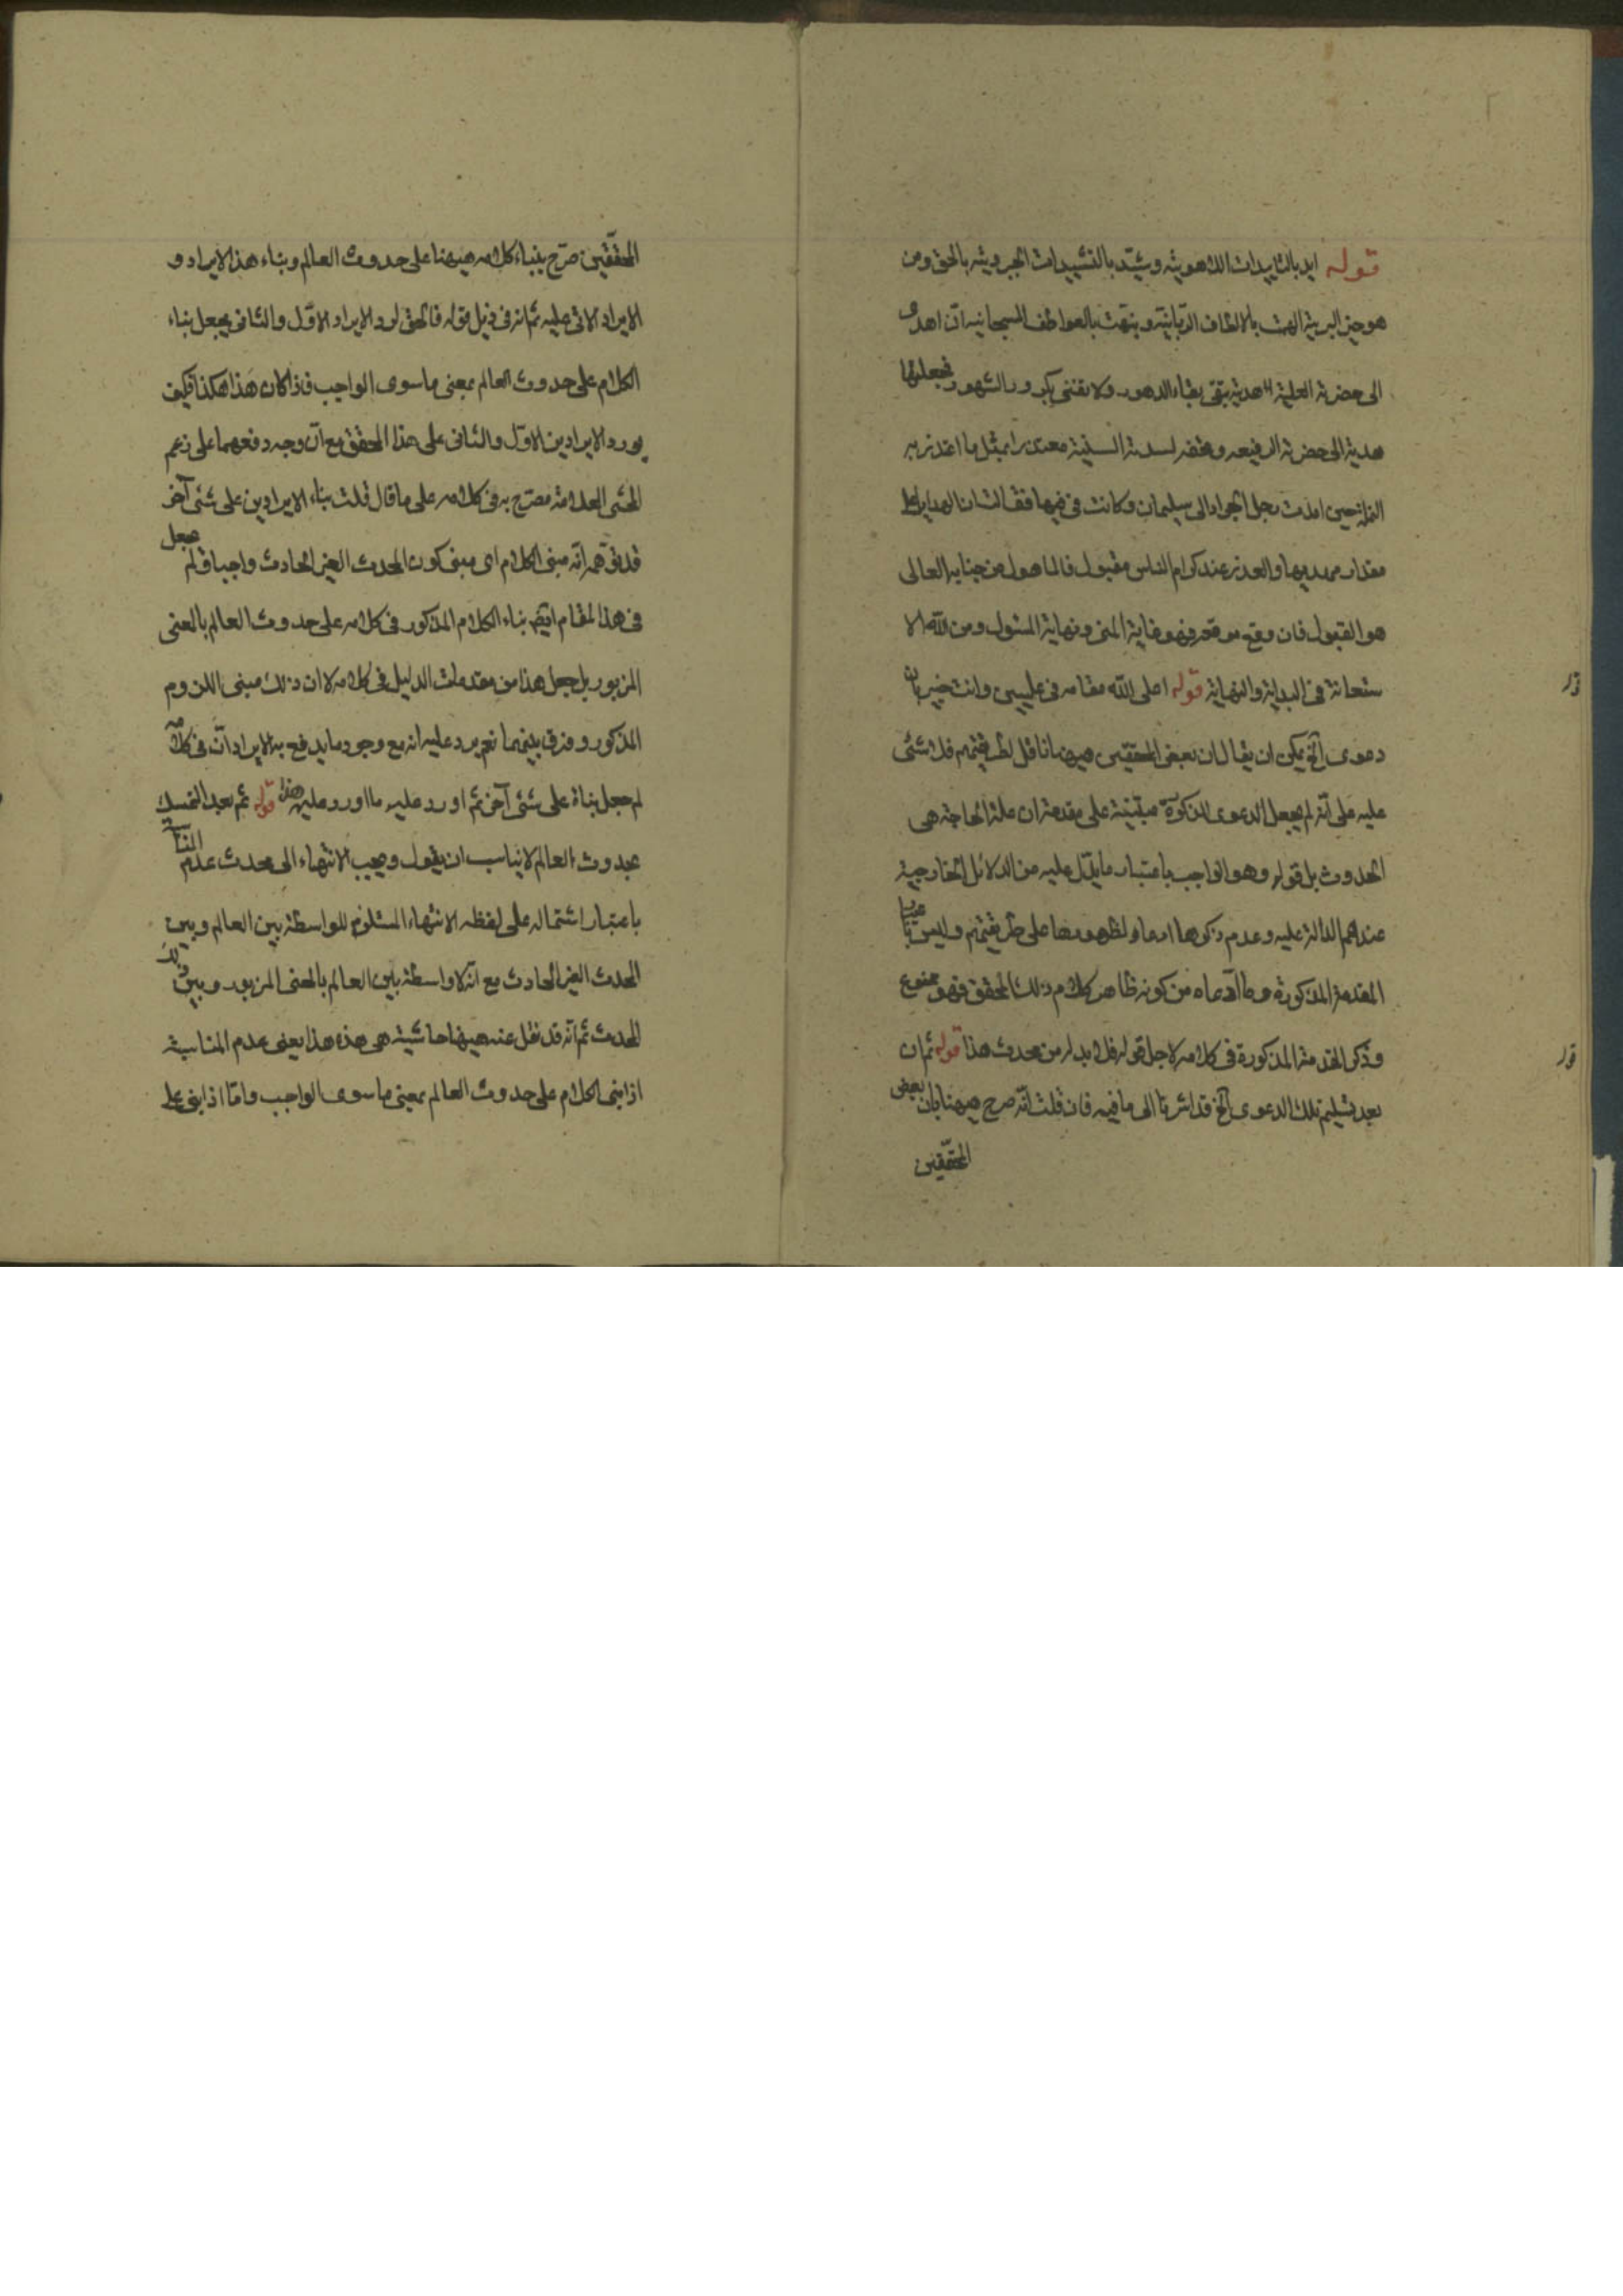 قوله ايد بالتاييدات اللاهوتية وشيد بالتشييدات الجبروتية بالحق ومن
هو خير البرية الهمت بالالطاف الربانية ونبهت بالعواطف السبحانية ان اهدى
الى حضرته العلية هدية تبقى بقاء الدهور ولا تفنى بكرور الشهور فجعلتها
هدية الى حضرته الرفيعه لسدته السنية معتذرا بمثل ما اعتذر به
النملة حين اهدت رجل الجراد الى سليمان وكانت في فيها فقالت ان الهدايا على
مقدار مهديها والعذر عند كرام الناس مقبول فالمامول من جنابه العالى
هو القبول فان وقع موقعه فهو غاية المنى ونهاية المسئول ومن الله الا
ستعانة في البداية والنهاية قوله اعلى الله مقامه في عليين وانت خبير بان
دعوى الخ يمكن ان يقال ان بعض المحققين هيهنا ناقل لطريقتهم فلا شئ
عليه على انه لم يجعل الدعوى المذكورة مبتنية على مقدمة ان علة الحاجة هى
الحدوث بل قوله وهو الواجب باعتبار ما يدل عليه من الدلائل الخارجية
عندهم الدالة عليه وعدم ذكرها ادعاء لظهورها على طريقتهم وليس
المقدمة المذكورة وما ادعاه من كونه ظاهر كلام ذلك المحقق فهو ممنوع
وذكر المقدمة المذكورة في كلامه لاجل قوله فلا بد له من محدث هذا قوله ثم ان
بعد تسليم تلك الدعوى الخ قد اشرنا الى ما فيه فان قلت انه صرح هيهنا بان بعض
المحققين
المحققين صرح ببناء كلامه هيهنا على حدوث العالم وبناء هذا الايراد و
الايراد الاتى عليه ثم انه في ذيل قوله فالحق لورد الايراد الاول والثانى يجعل بناء
الكلام على حدوث العالم بمعنى ما سوى الواجب فاذا كان هذا هكذا فكيف
يورد الايرادين الاول والثانى على هذا المحقق مع ان وجه دفعهما على زعم
المحشى العلامة مصرح به في كلامه على ما قال قلت بناء الايرادين على شئ آخر
قد توهم انه مبنى الكلام اى مبنى كون المحدث الغير الحادث واجبا ولم يجعل
في هذا المقام ايضا بناء الكلام المذكور في كلامه على حدوث العالم بالمعنى
المزبور بل جعل هذا من مقدمات الدليل في كلامه لا ان ذلك مبنى اللزوم
المذكور وفرق بينهما نعم يرد عليه انه مع وجود ما يدفع به الايرادات في كلامه
لم جعل بناه على شئ آخر ثم اورد عليه ما اورد عليه هذا قوله ثم بعد التمسك
بحدوث العالم لا يناسب ان يقول ويجب الانتهاء الى محدث عدم المناسبة
باعتبار اشتماله على لفظه الانتهاء المستلزم للواسطة بين العالم وبين
المحدث الغير الحادث مع انه لا واسطة بين العالم بالمعنى المزبور وبين ذلك
المحدث ثم انه قد نقل عنه هيهنا حاشية هى هذه هذا يعنى عدم المناسبة
اذا بنى الكلام على حدوث العالم بمعنى ما سوى الواجب واما اذا بنى على